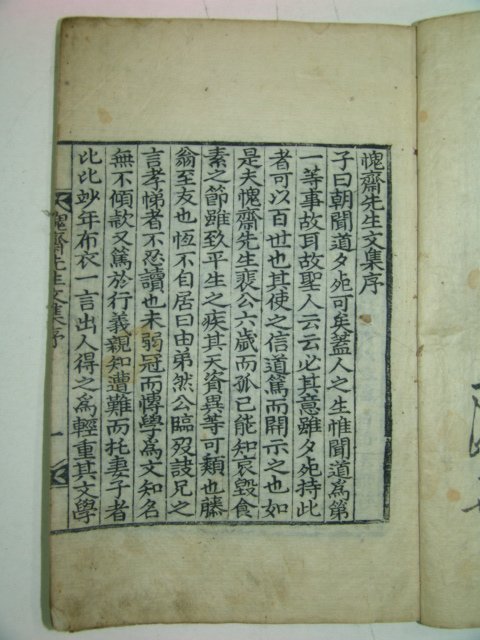 愧齋先生文集序
子曰朝聞道夕死可矣蓋人之生惟聞道爲第
一等事故耳故聖人云云必其意雖夕死持此
者可以百世也其使之信道篤而開示之也如
是夫愧齋先生裴公六歲而孤已能知哀毀食
素之節雖致平生之疾其天資異等可類也滕
翁至友也恆不自居曰由弟然公臨歿詖兄之
言孝悌者不忍讀也未弱冠而博學爲文知名
無不傾款又篤於行義親知遭難而托妻子者
比比妙年布衣一言出人得之爲輕重其文學
愧齋先生文集序
一